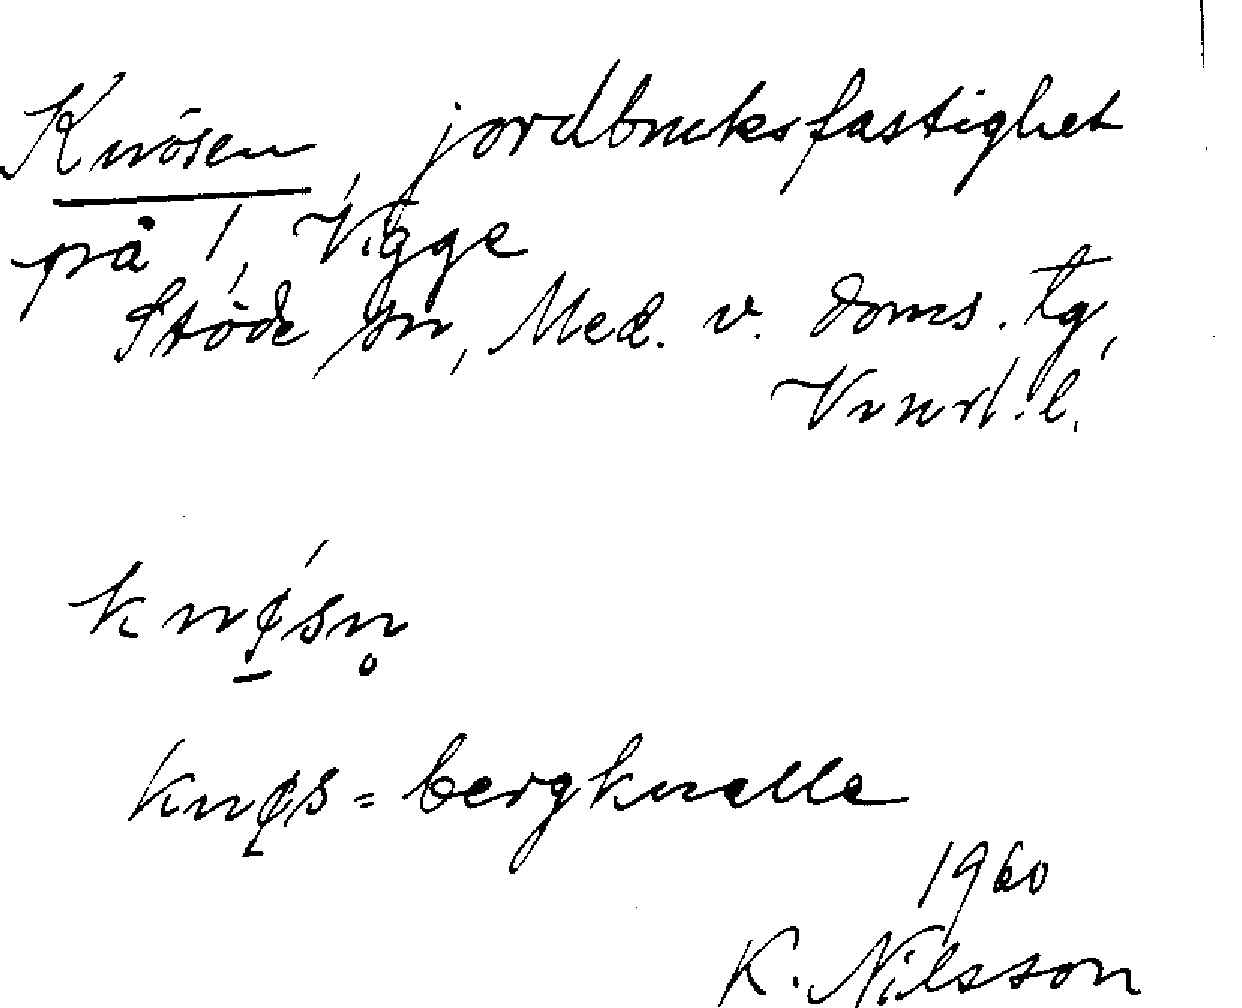 Knösen, jordbruksfastighet
på 1, Vigge
Stöde sn, Med. v. doms. tg,
Vnrl. l.
knǿ̱sn̥
knøs = bergknalle
1960
K. Nilsson